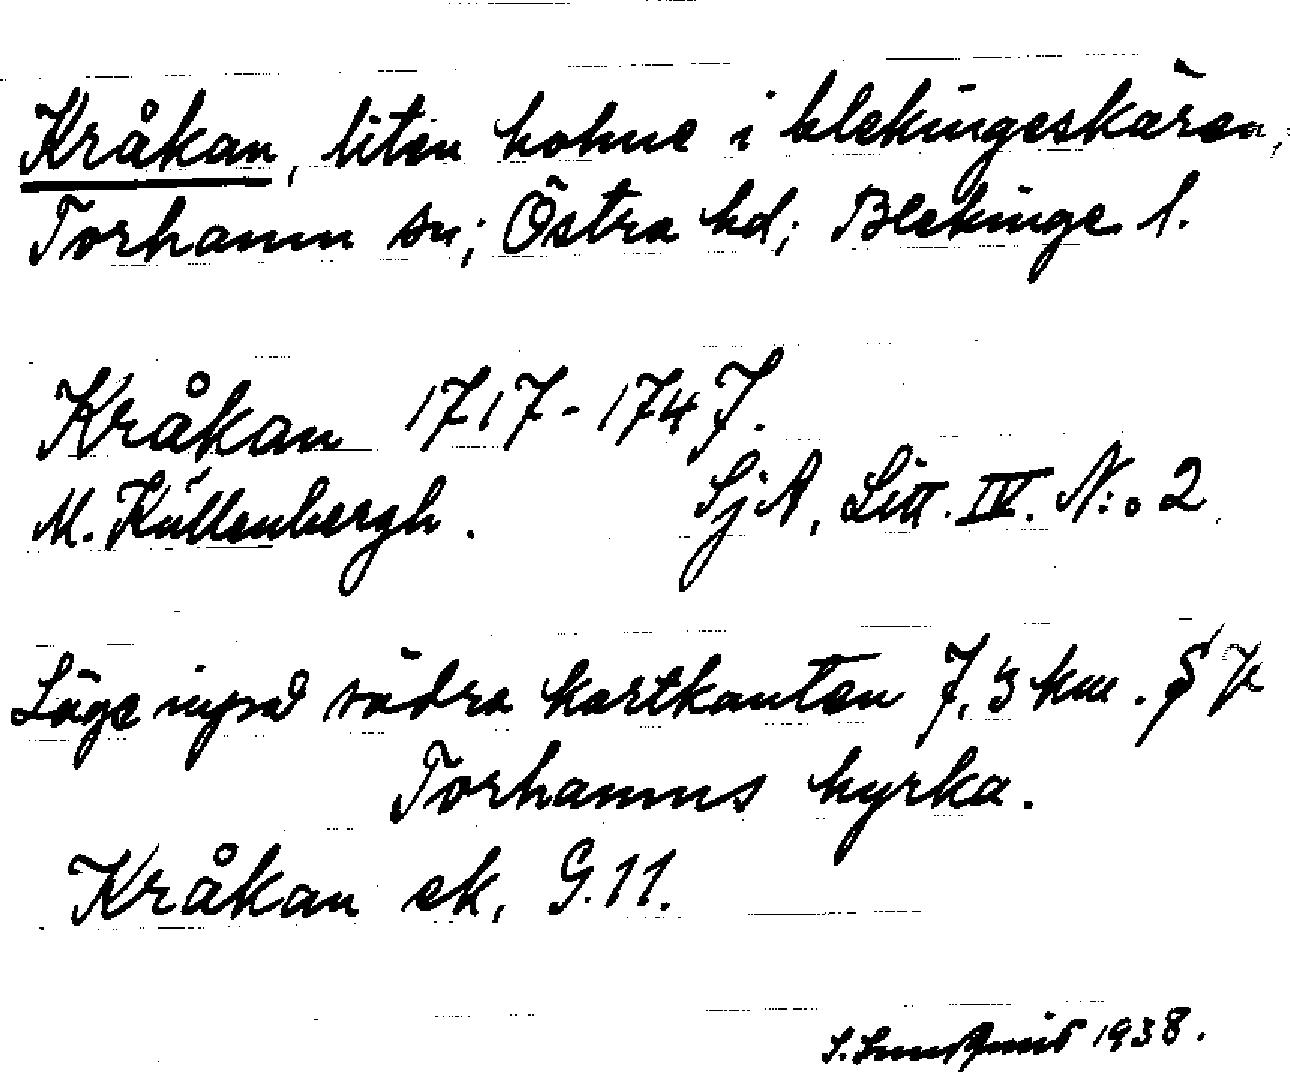 Kråkan, liten holme i blekingeskären,
Torhamn sn; Östra hd; Blekinge l.
Kråkan 1717-1747.
M. Kullenbergh. SjA, Litt. IV. N:o 2
Läge invid södra kartkanten 7,3 km. S
Torhamns kyrka.
Kråkan ek, G.11.
S. Lundqvist 1938.